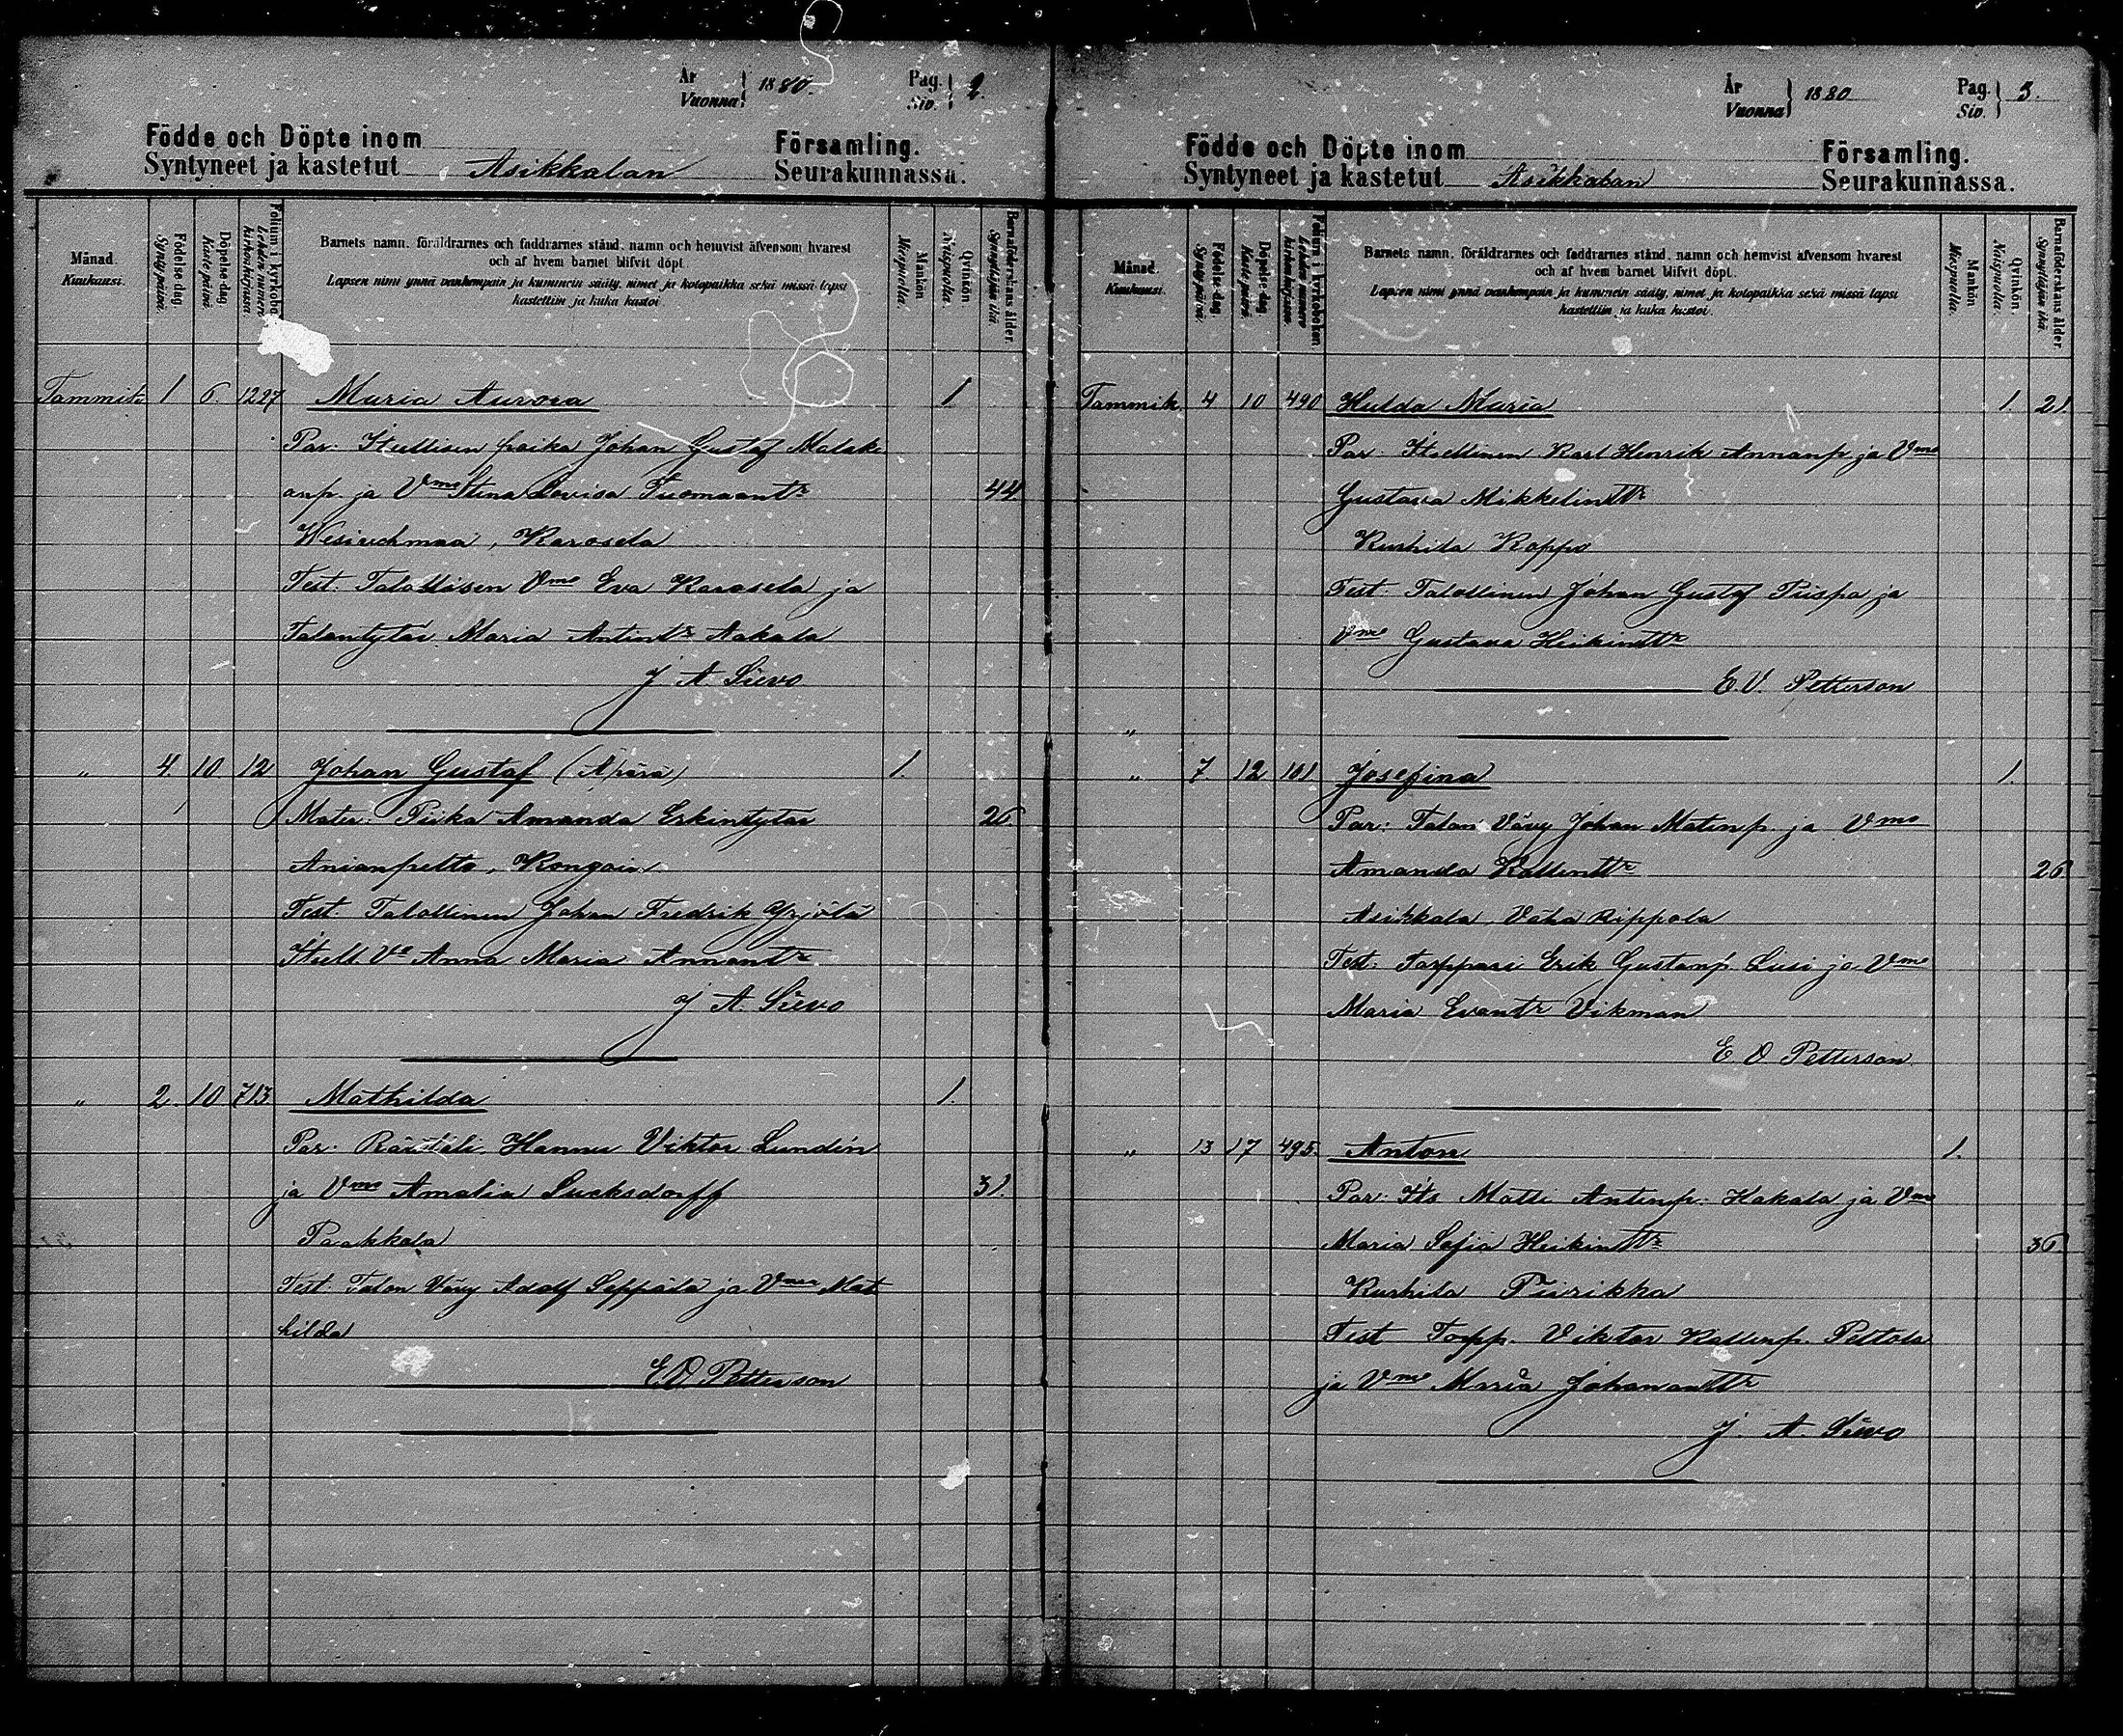 År
Vuonna } 1880.
Pag.
Siv. } 2.
Födde och Döpte inom Församling.
Syntyneet ja kastetut Asikkalan Seurakunnassa.
Månad.
Kuukausi.
Födelse-dag.
Syntypäivä.
Döpelse-dag.
Kastepäivä.
Folium i kyrkobo
Lehden numero
kirkonkirjassa.
Barnets namn, föräldrarnes och faddrarnes stånd, namn och hemvist äfvensom hvarest
och af hvem barnet blifvit döpt.
Lapsen nimi ynnä vanhempain ja kummein sääty, nimet ja kotopaikka sekä missä lapsi
kastettiin ja kuka kastoi.
Mankön
Miespuolia.
Qvinkön.
Naispuolia.
Barnaföderskans ålder.
Synnyttäjän ikä.
Tammik. 1 6. 1227 Maria Aurora 1
Par: Itsellisen poika Johan Gustaf Malak
anp. ja Vmo Stina Lovisa Tuomaantr 44
Wesivehmaa, Karosela
Test: Talollisen Vmo Eva Karosela ja
Talontytär Maria Antintr Aakala
J A Sievo
" 4. 10 12 Johan Gustaf (Äpärä) 1.
Mater: Piika Amanda Erkintytär 26.
Anianpelto, Kongain
Test: Talollinen Johan Fredrik Yrjölä
Itsell. Vo Anna Maria Annantr
J A. Sievo
" 2. 10 713. Mathilda 1.
Par: Räätäli Hannu Viktor Lundén
ja Vmo Amalia Lucksdorff 31.
Paakkola
Test: Talon Vävy Adolf Seppälä ja Vmo Mat
hilda
E O Petterson
År
Vuonna } 1880
Pag.
Siv. } 3.
Födde och Döpte inom Församling.
Syntyneet ja kastetut Asikkalan Seurakunnassa.
Månad.
Kuukausi.
Födelse-dag.
Syntypäivä.
Döpelse-dag.
Kastepäivä.
Folium i kyrkoboken
Lehden numero
kirkonkirjassa.
Barnets namn, föräldrarnes och faddrarnes stånd, namn och hemvist äfvensom hvarest
och af hvem barnet blifvit döpt.
Lapsen nimi ynnä vanhempain ja kummein sääty, nimet ja kotopaikka sekä missä lapsi
kastettiin ja kuka kastoi.
Mankön
Miespuolia.
Qvinkön.
Naispuolia.
Barnaföderskans ålder.
Synnyttäjän ikä.
Tammik. 4 10 490 Hulda Maria 1. 21.
Par: Itsellinen Karl Henrik Annanp. ja Vmo
Gustava Mikkelinttr
Kurhila Koppo
Test: Talollinen Johan Gustaf Piispa ja
Vmo Gustava Heikinttr
E. O. Petterson
"
" 7. 12 101 Josefina 1.
Par: Talon Vävy Johan Matinp. ja Vmo
Amanda Kallenttr 26
Asikkala, Vähä Rippola
Test: Torppari Erik Gustanp. Liisi ja Vmo
Maria Evantr Vikman
E O Petterson
" 13 17 495. Anton 1.
Par: Its Matti Antinp. Kakala ja Vmo
Maria Sofia Heikinttr 36.
Kurhila Piirikka
Test Torpp. Viktor Kallenp. Peltola
ja Vmo Maria Johananttr
J. A. Sievo